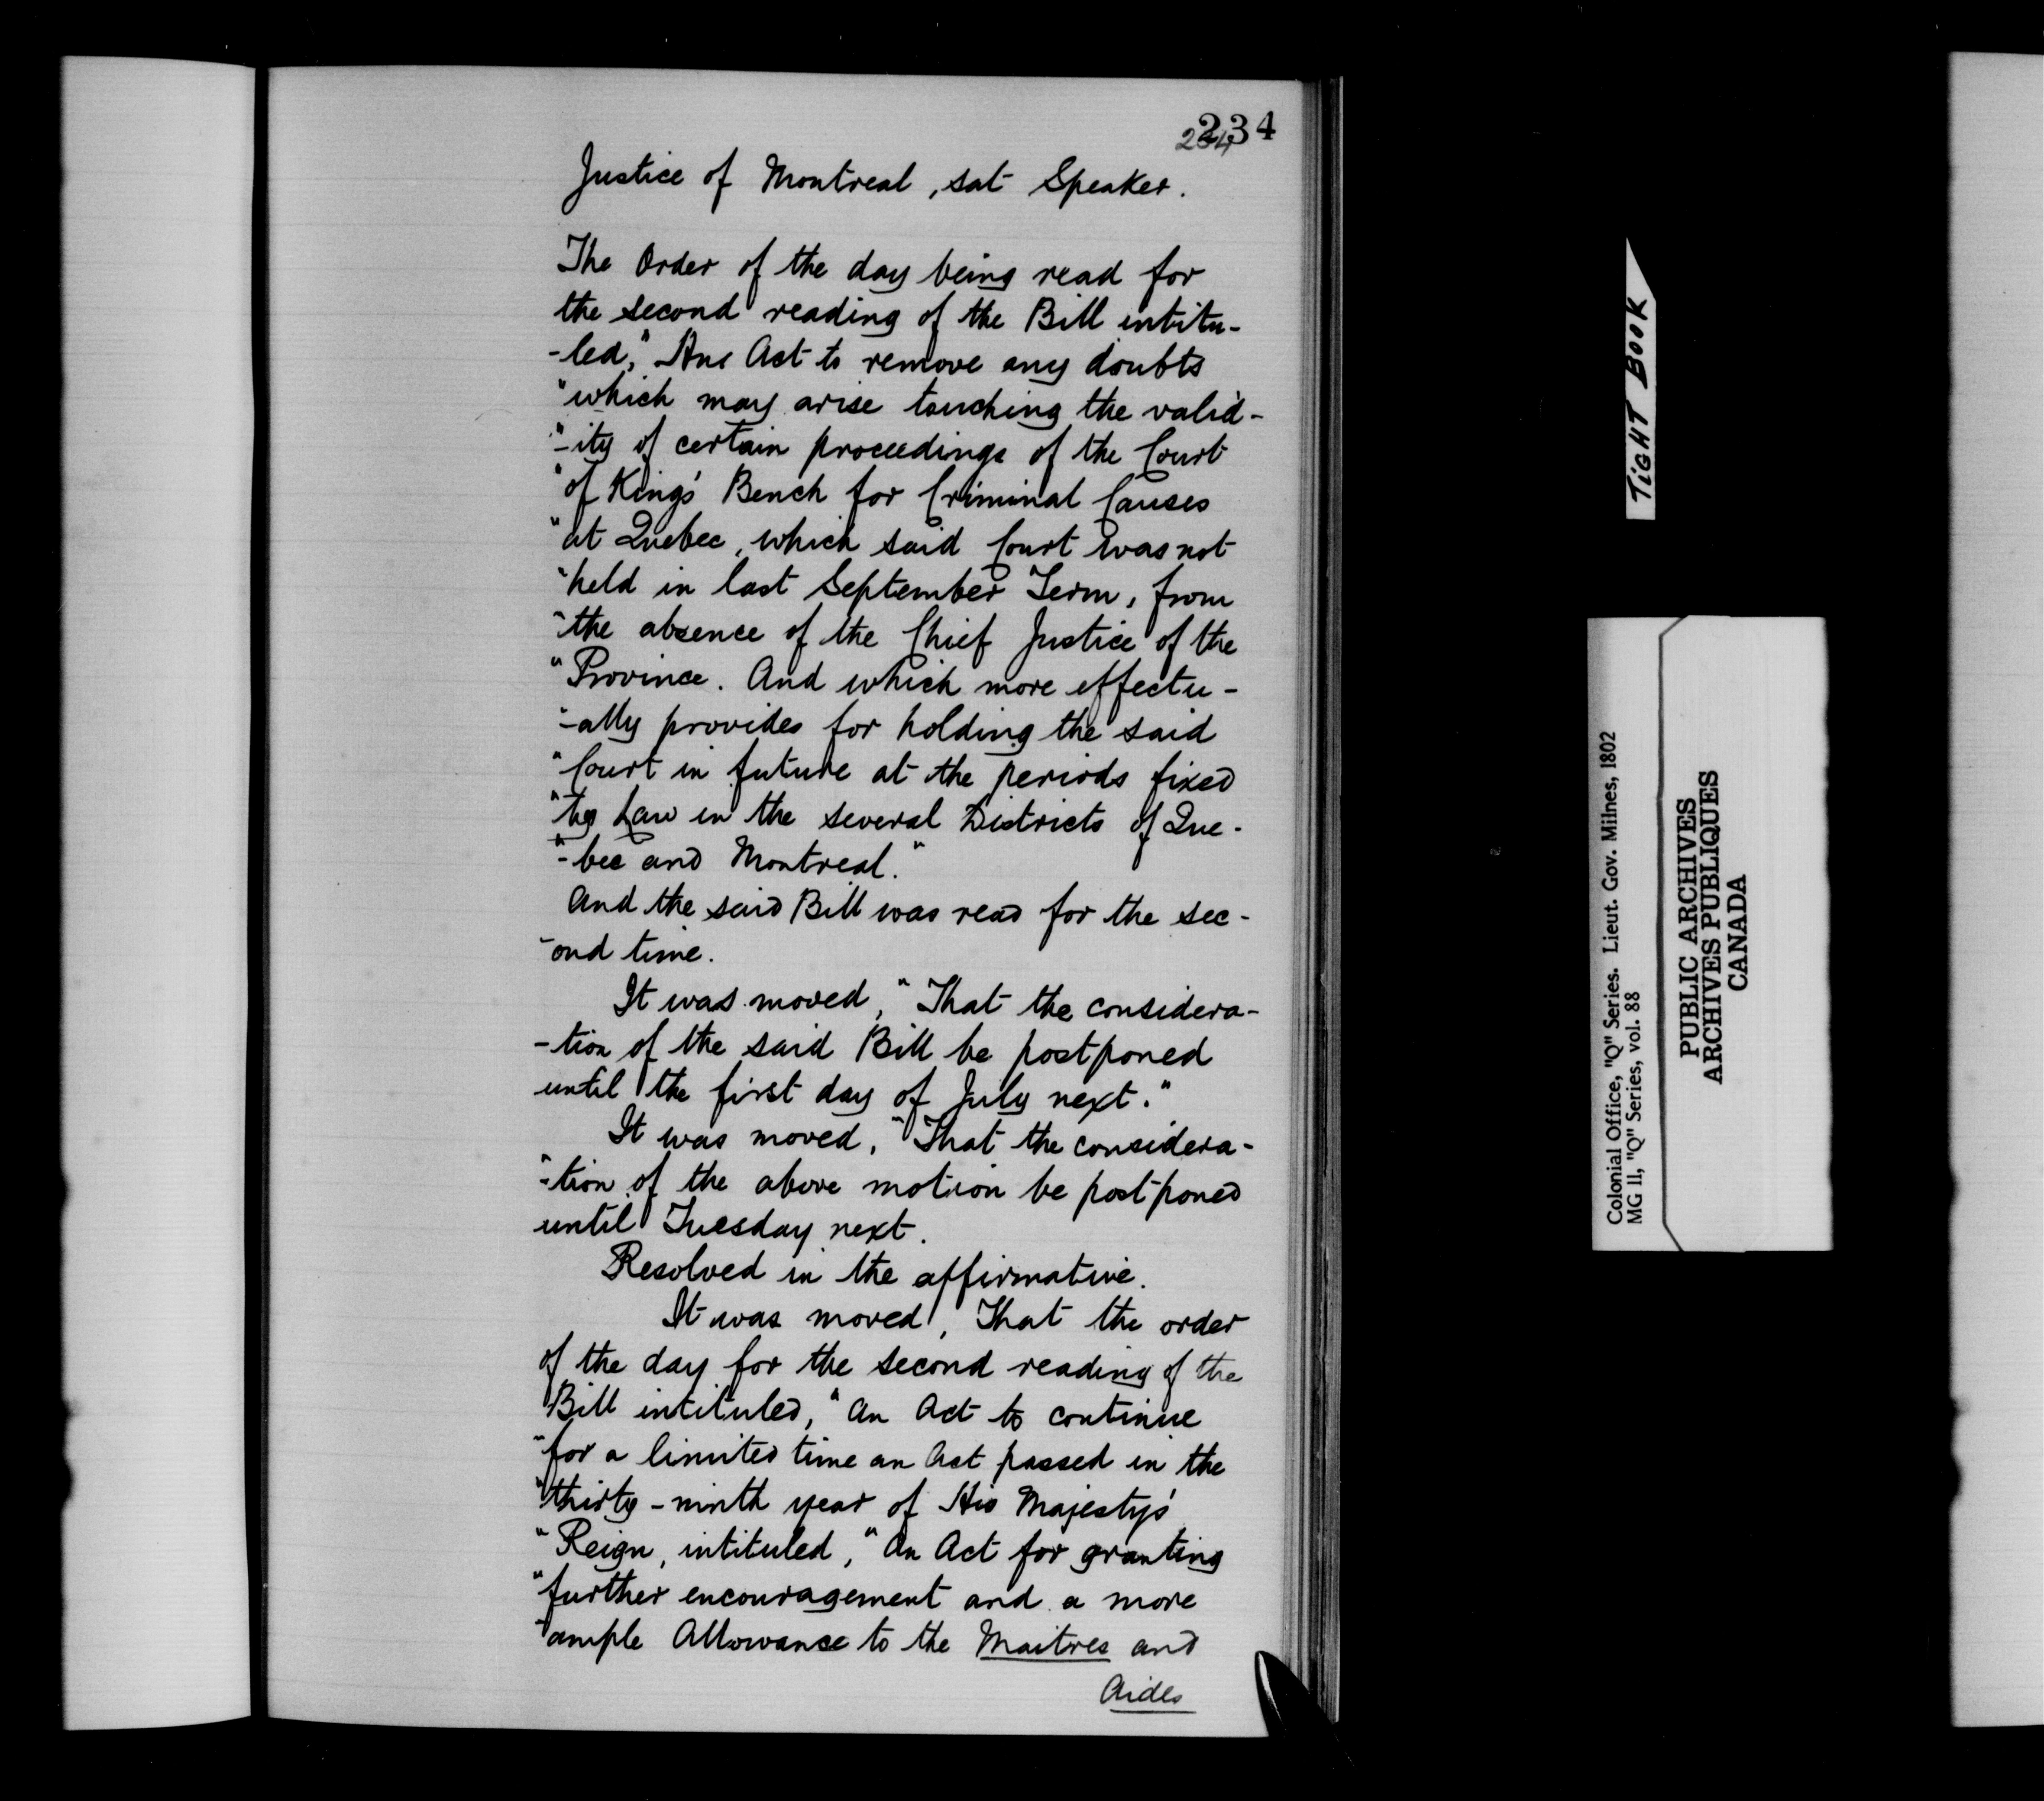 234
234
Justice of Montreal, sat Speaker.
The Order of the day being read for
the second reading of the Bill intitu-
-led, "An Act to remove any doubts
"which may arise touching the valid-
"-ity of certain proceedings of the Court
"of King's Bench for Criminal Causes
"at Quebec, which said Court was not
"held in last September Term, from
"the absence of the Chief Justice of the
"Province. And which more effectu-
"-ally provides for holding the said
"Court in future at the periods fixed
"by Law in the several Districts of Que-
"-bec and Montreal."
And the said Bill was read for the sec-
-ond time.
It was moved, "That the considera-
-tion of the said Bill be postponed
until the first day of July next."
It was moved, "That the considera-
"-tion of the above motion be postponed
until Tuesday next.
Resolved in the affirmative.
It was moved, That the order
of the day for the second reading of the
Bill intituled, "An Act to continue
"for a limited time an Act passed in the
"thirty-ninth year of His Majesty's
"Reign, intituled, "An Act for granting
"further encouragement and a more
"ample Allowance to the Maitres and
Aides
TIGHT BOOK
Colonial Office, "Q" Series. Lieut. Gov. Milnes, 1802
MG 11, "Q" Series, vol. 88
PUBLIC ARCHIVES
ARCHIVES PUBLIQUES
CANADA